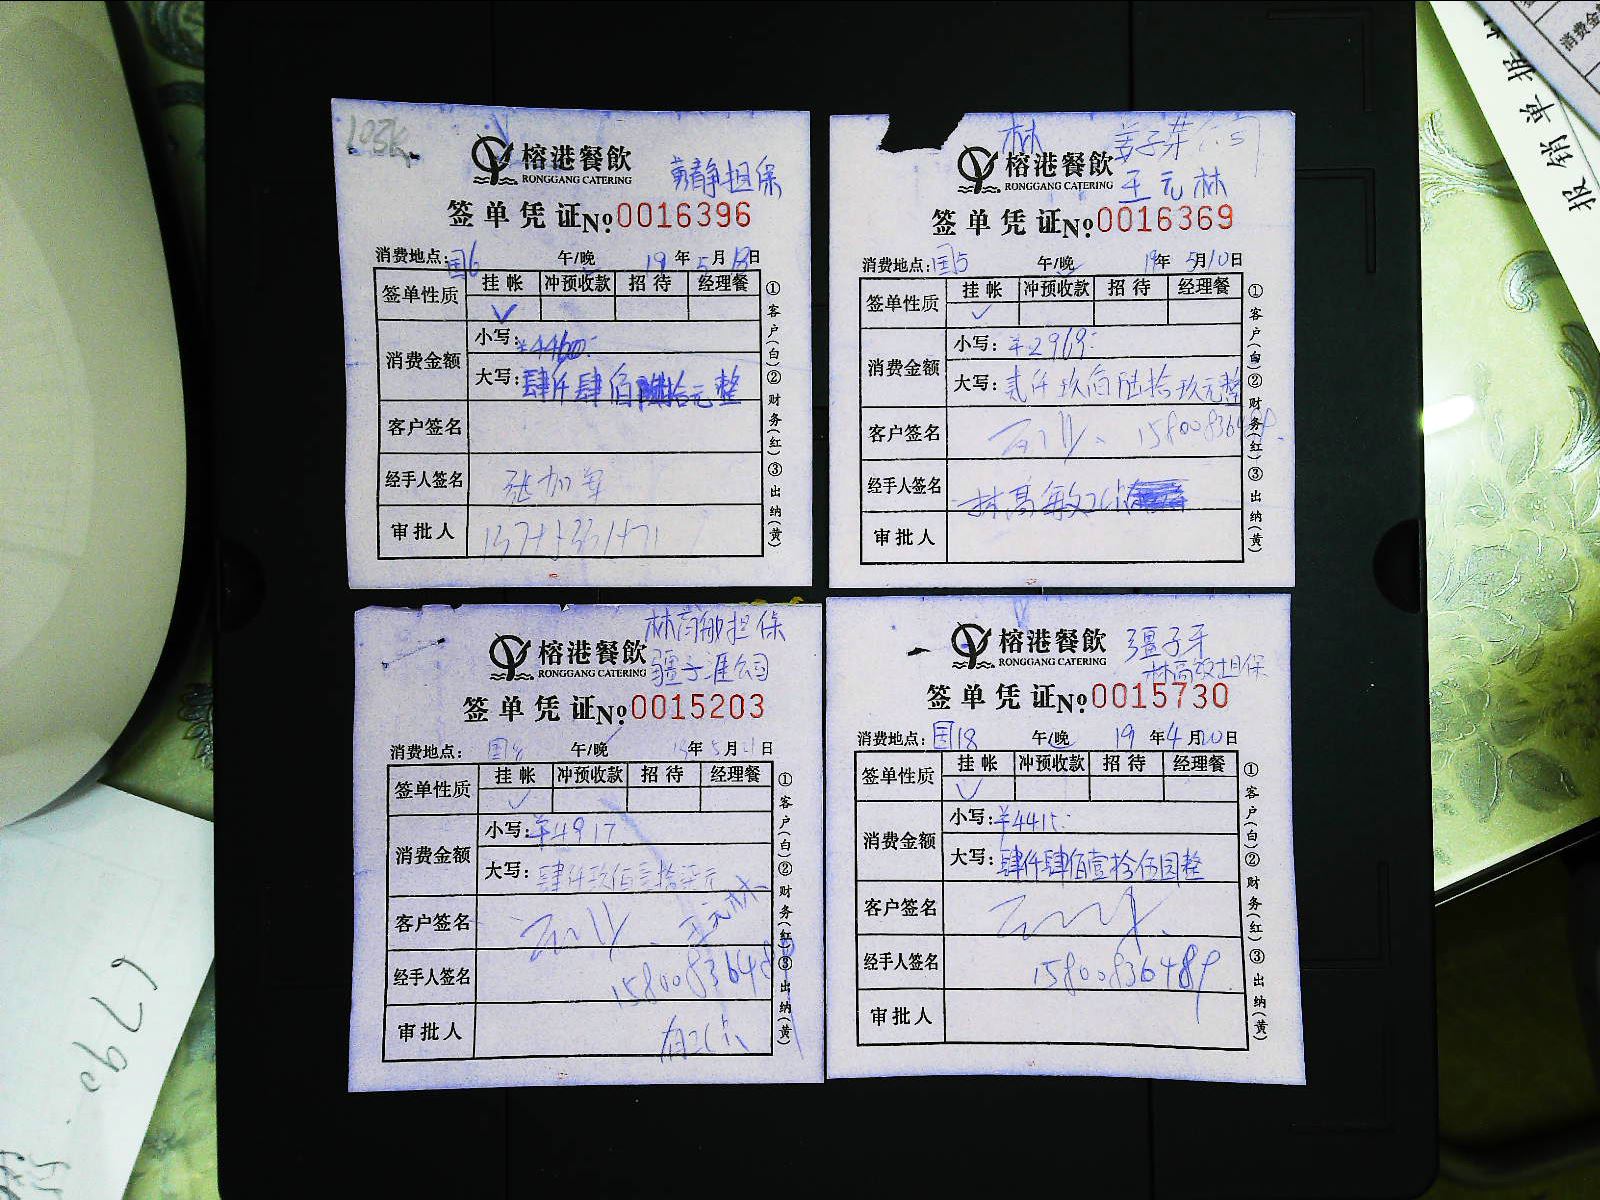 榕港餐飲
RONGGANG CATERING
黄静担保
签单凭证 No. 0016396
消费地点: 国6 午/晚 19年5月18日
签单性质 挂帐 冲预收款 招待 经理餐
✓
消费金额 小写: ¥4460.-
大写: 肆仟肆佰陆拾元整
客户签名
经手人签名 张加军
审批人
①客户(白)②财务(红)③出纳(黄)
林
榕港餐飲
RONGGANG CATERING
王元林
签单凭证 No. 0016369
消费地点: 国5 午/晚 19年5月10日
签单性质 挂帐 冲预收款 招待 经理餐
✓
消费金额 小写: ¥2969.-
大写: 贰仟玖佰陆拾玖元整
客户签名 15800836489
经手人签名 林高敏
审批人
①客户(白)②财务(红)③出纳(黄)
林高敏担保
榕港餐飲
RONGGANG CATERING
疆子涯公司
签单凭证 No. 0015203
消费地点: 国8 午/晚 19年5月21日
签单性质 挂帐 冲预收款 招待 经理餐
✓
消费金额 小写: ¥4917
大写: 肆仟玖佰壹拾柒元
客户签名 王元林
经手人签名 15800836489
审批人
①客户(白)②财务(红)③出纳(黄)
榕港餐飲
RONGGANG CATERING
疆子牙
林高敏担保
签单凭证 No. 0015730
消费地点: 国18 午/晚 19年4月20日
签单性质 挂帐 冲预收款 招待 经理餐
✓
消费金额 小写: ¥4415.-
大写: 肆仟肆佰壹拾伍圆整
客户签名
经手人签名 15800836489
审批人
①客户(白)②财务(红)③出纳(黄)
报销单据
消费金
6790.